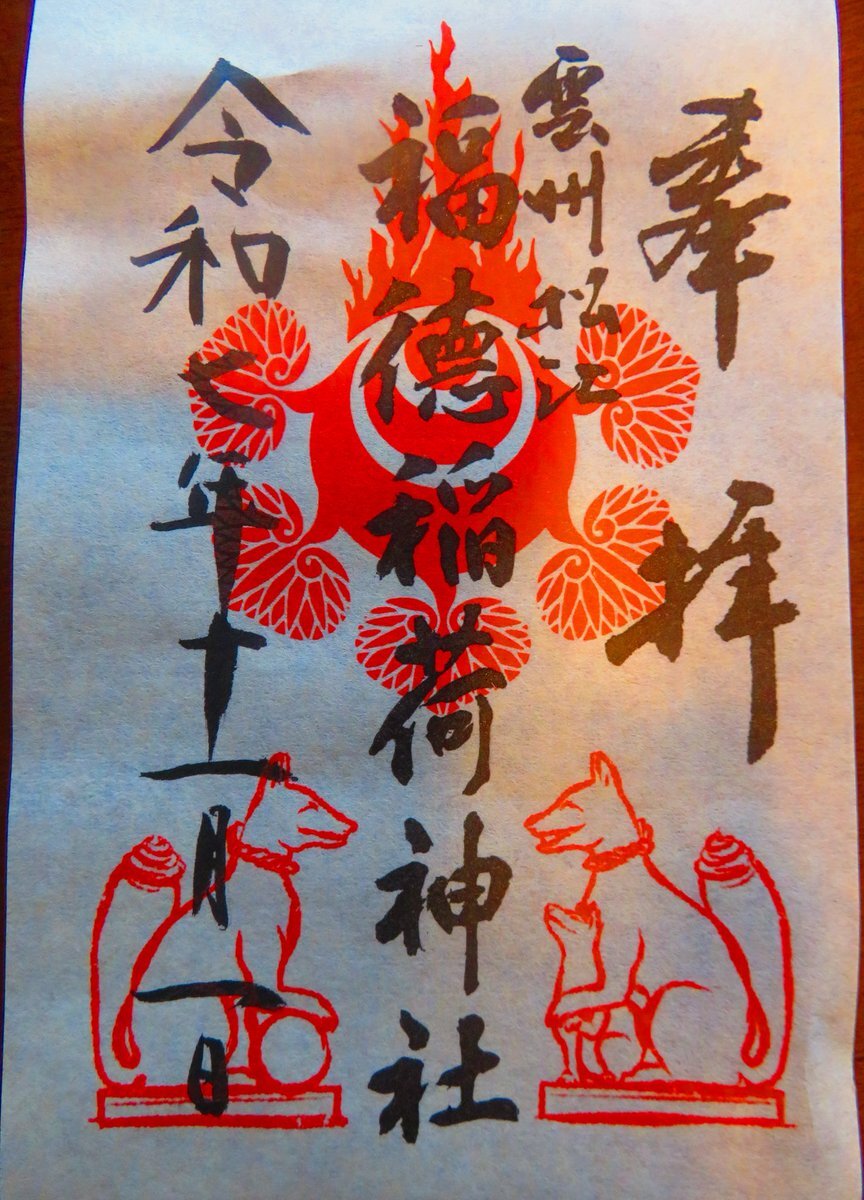 奉拝
雲州松江
福德稲荷神社
令和七年十一月一日